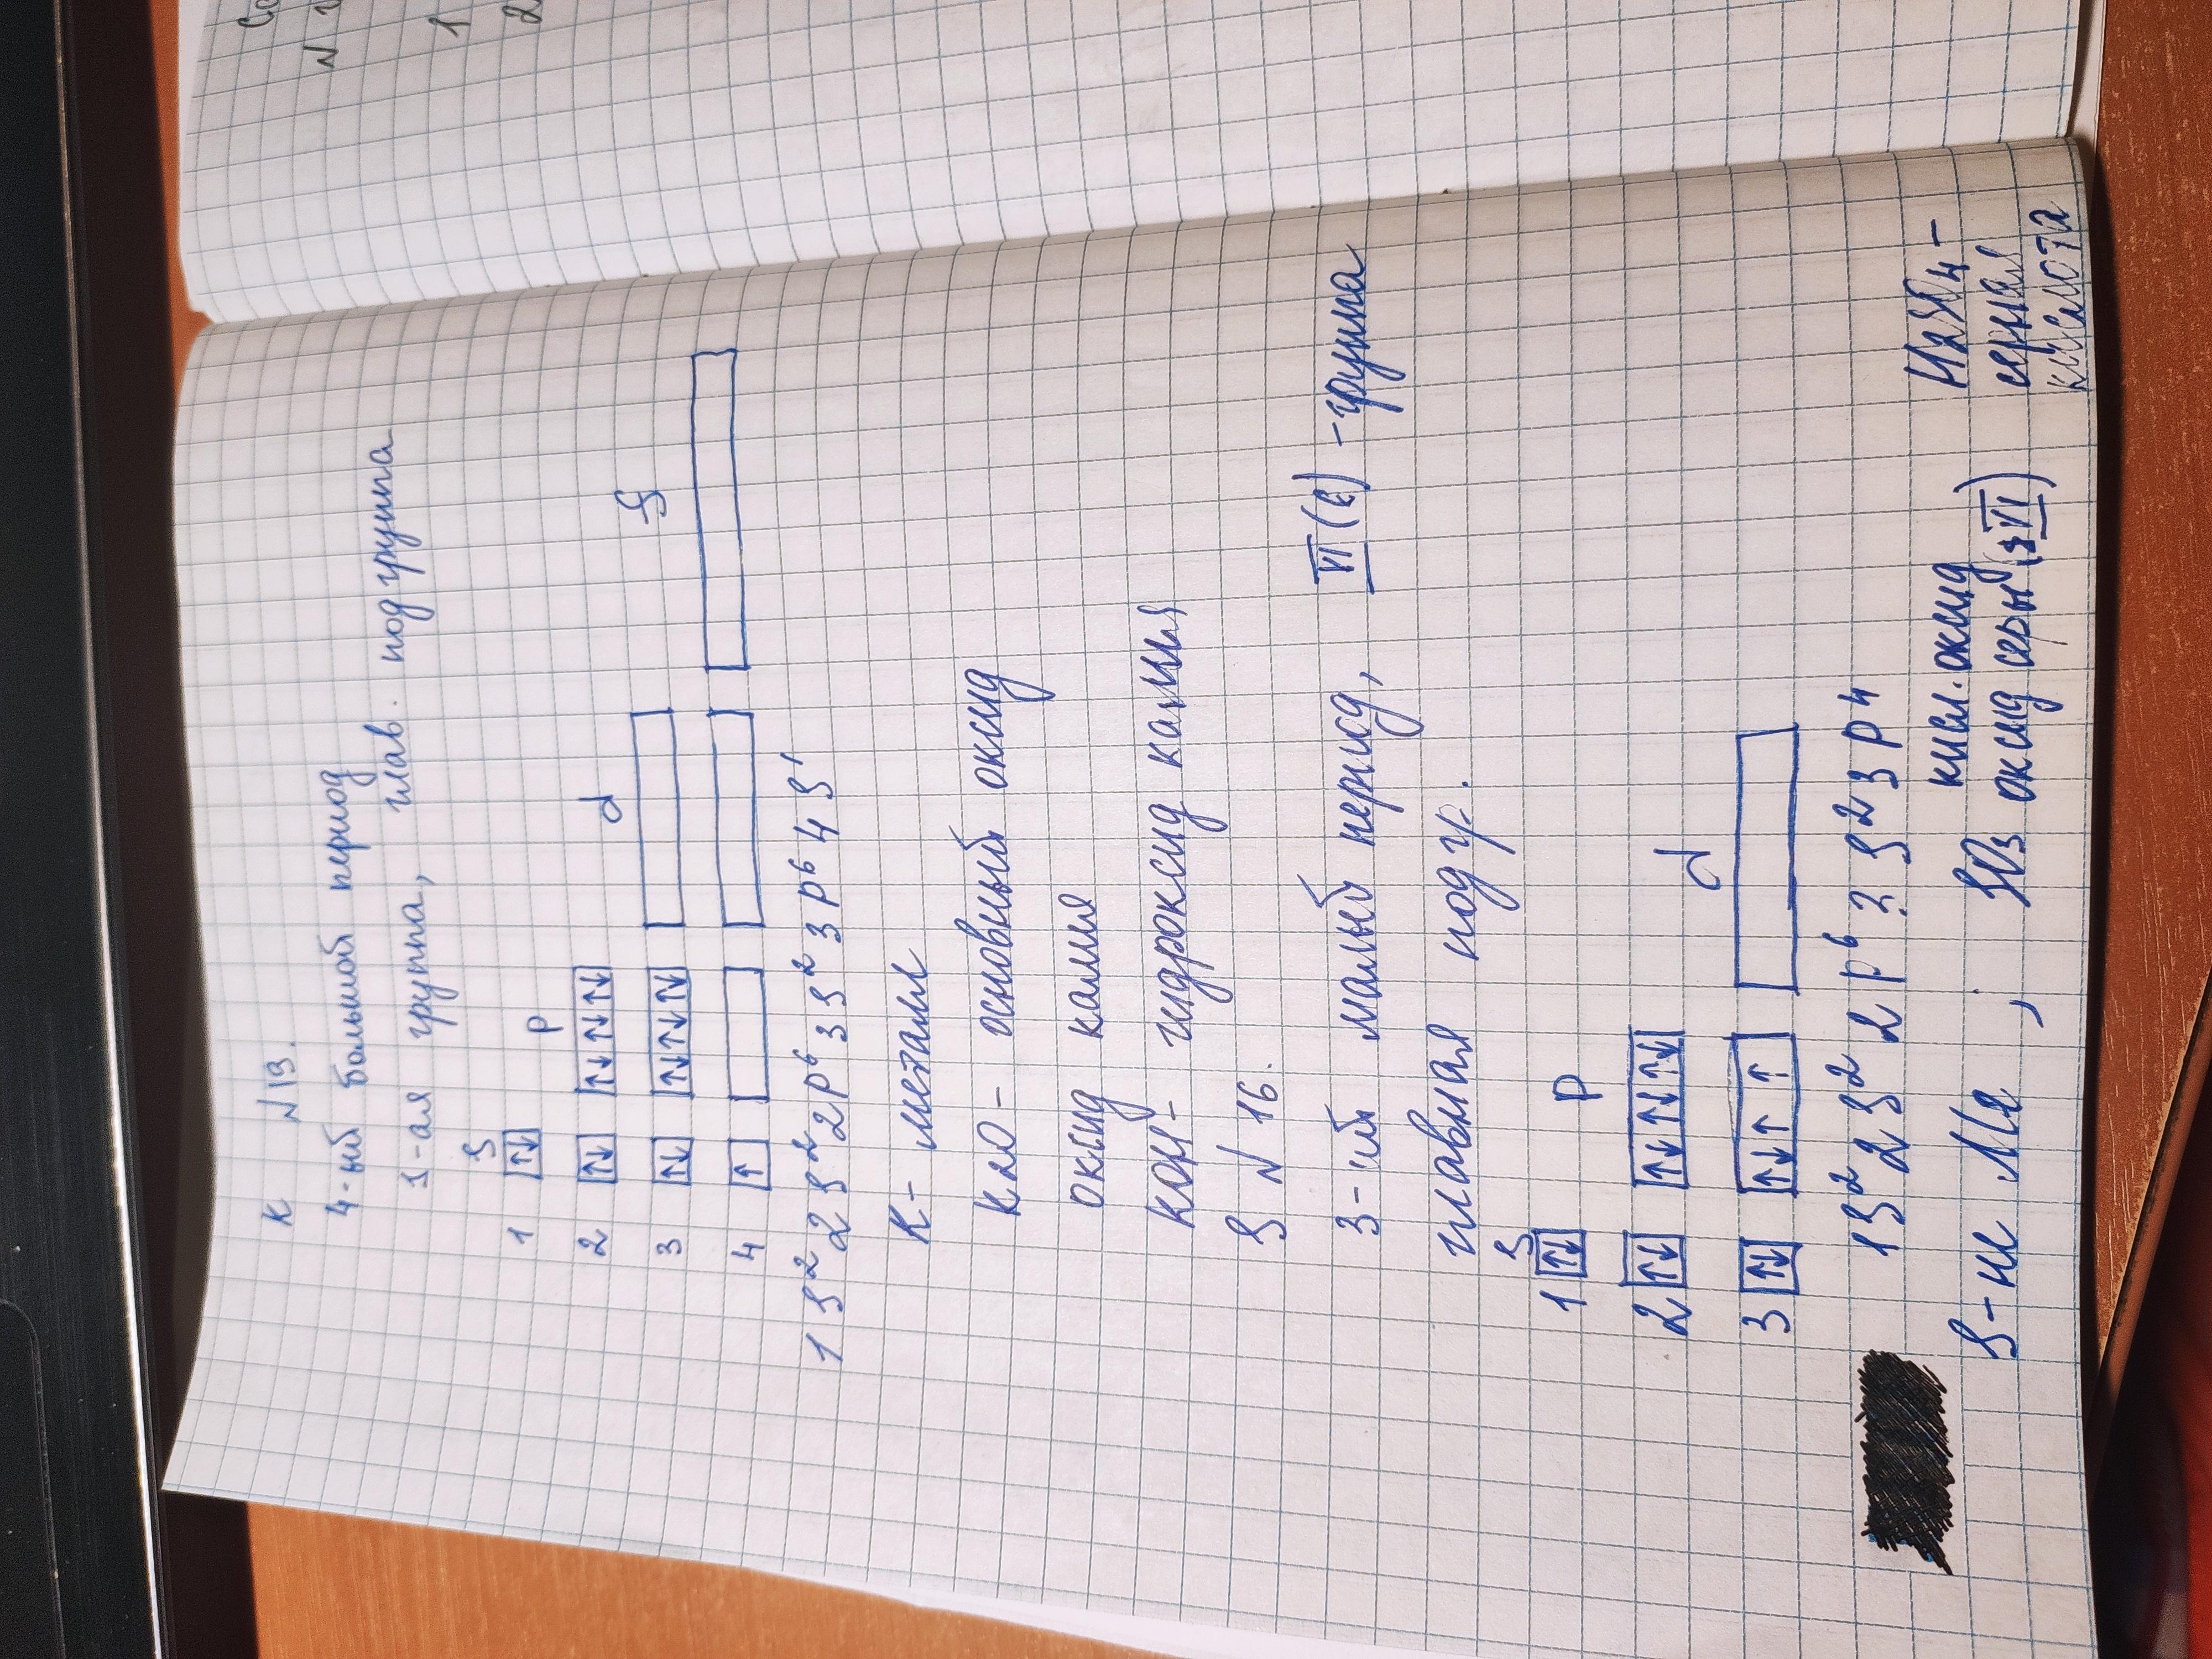 K N19.
4-ый большой период
1-ая группа, глав. подгруппа
S
1 ↑↓ p
2 ↑↓ ↑↓↑↓↑↓ d
3 ↑↓ ↑↓↑↓↑↓ f
4 ↑
1S² 2S² 2p⁶ 3S² 3p⁶ 4S¹
K - металл
K2O - основный оксид
оксид калия
KOH - гидроксид калия
S N 16.
3-ий малый период, VI (6) - группа
главная подгр.
S
1 ↑↓ p
2 ↑↓ ↑↓↑↓↑↓ d
3 ↑↓ ↑↓ ↑ ↑
1S² 2S² 2p⁶ 3S² 3p⁴
кисл. оксид
S - не Ме ; SO3 оксид серы (VI)
H2SO4 -
серная
кислота